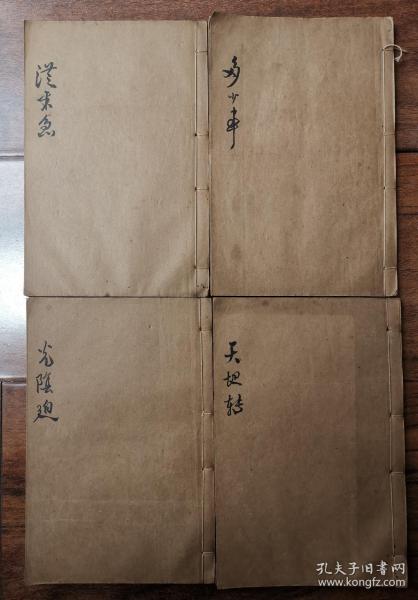 多少事
從来急
天地转
光陰迫
孔夫子旧书网
www.kongfz.com